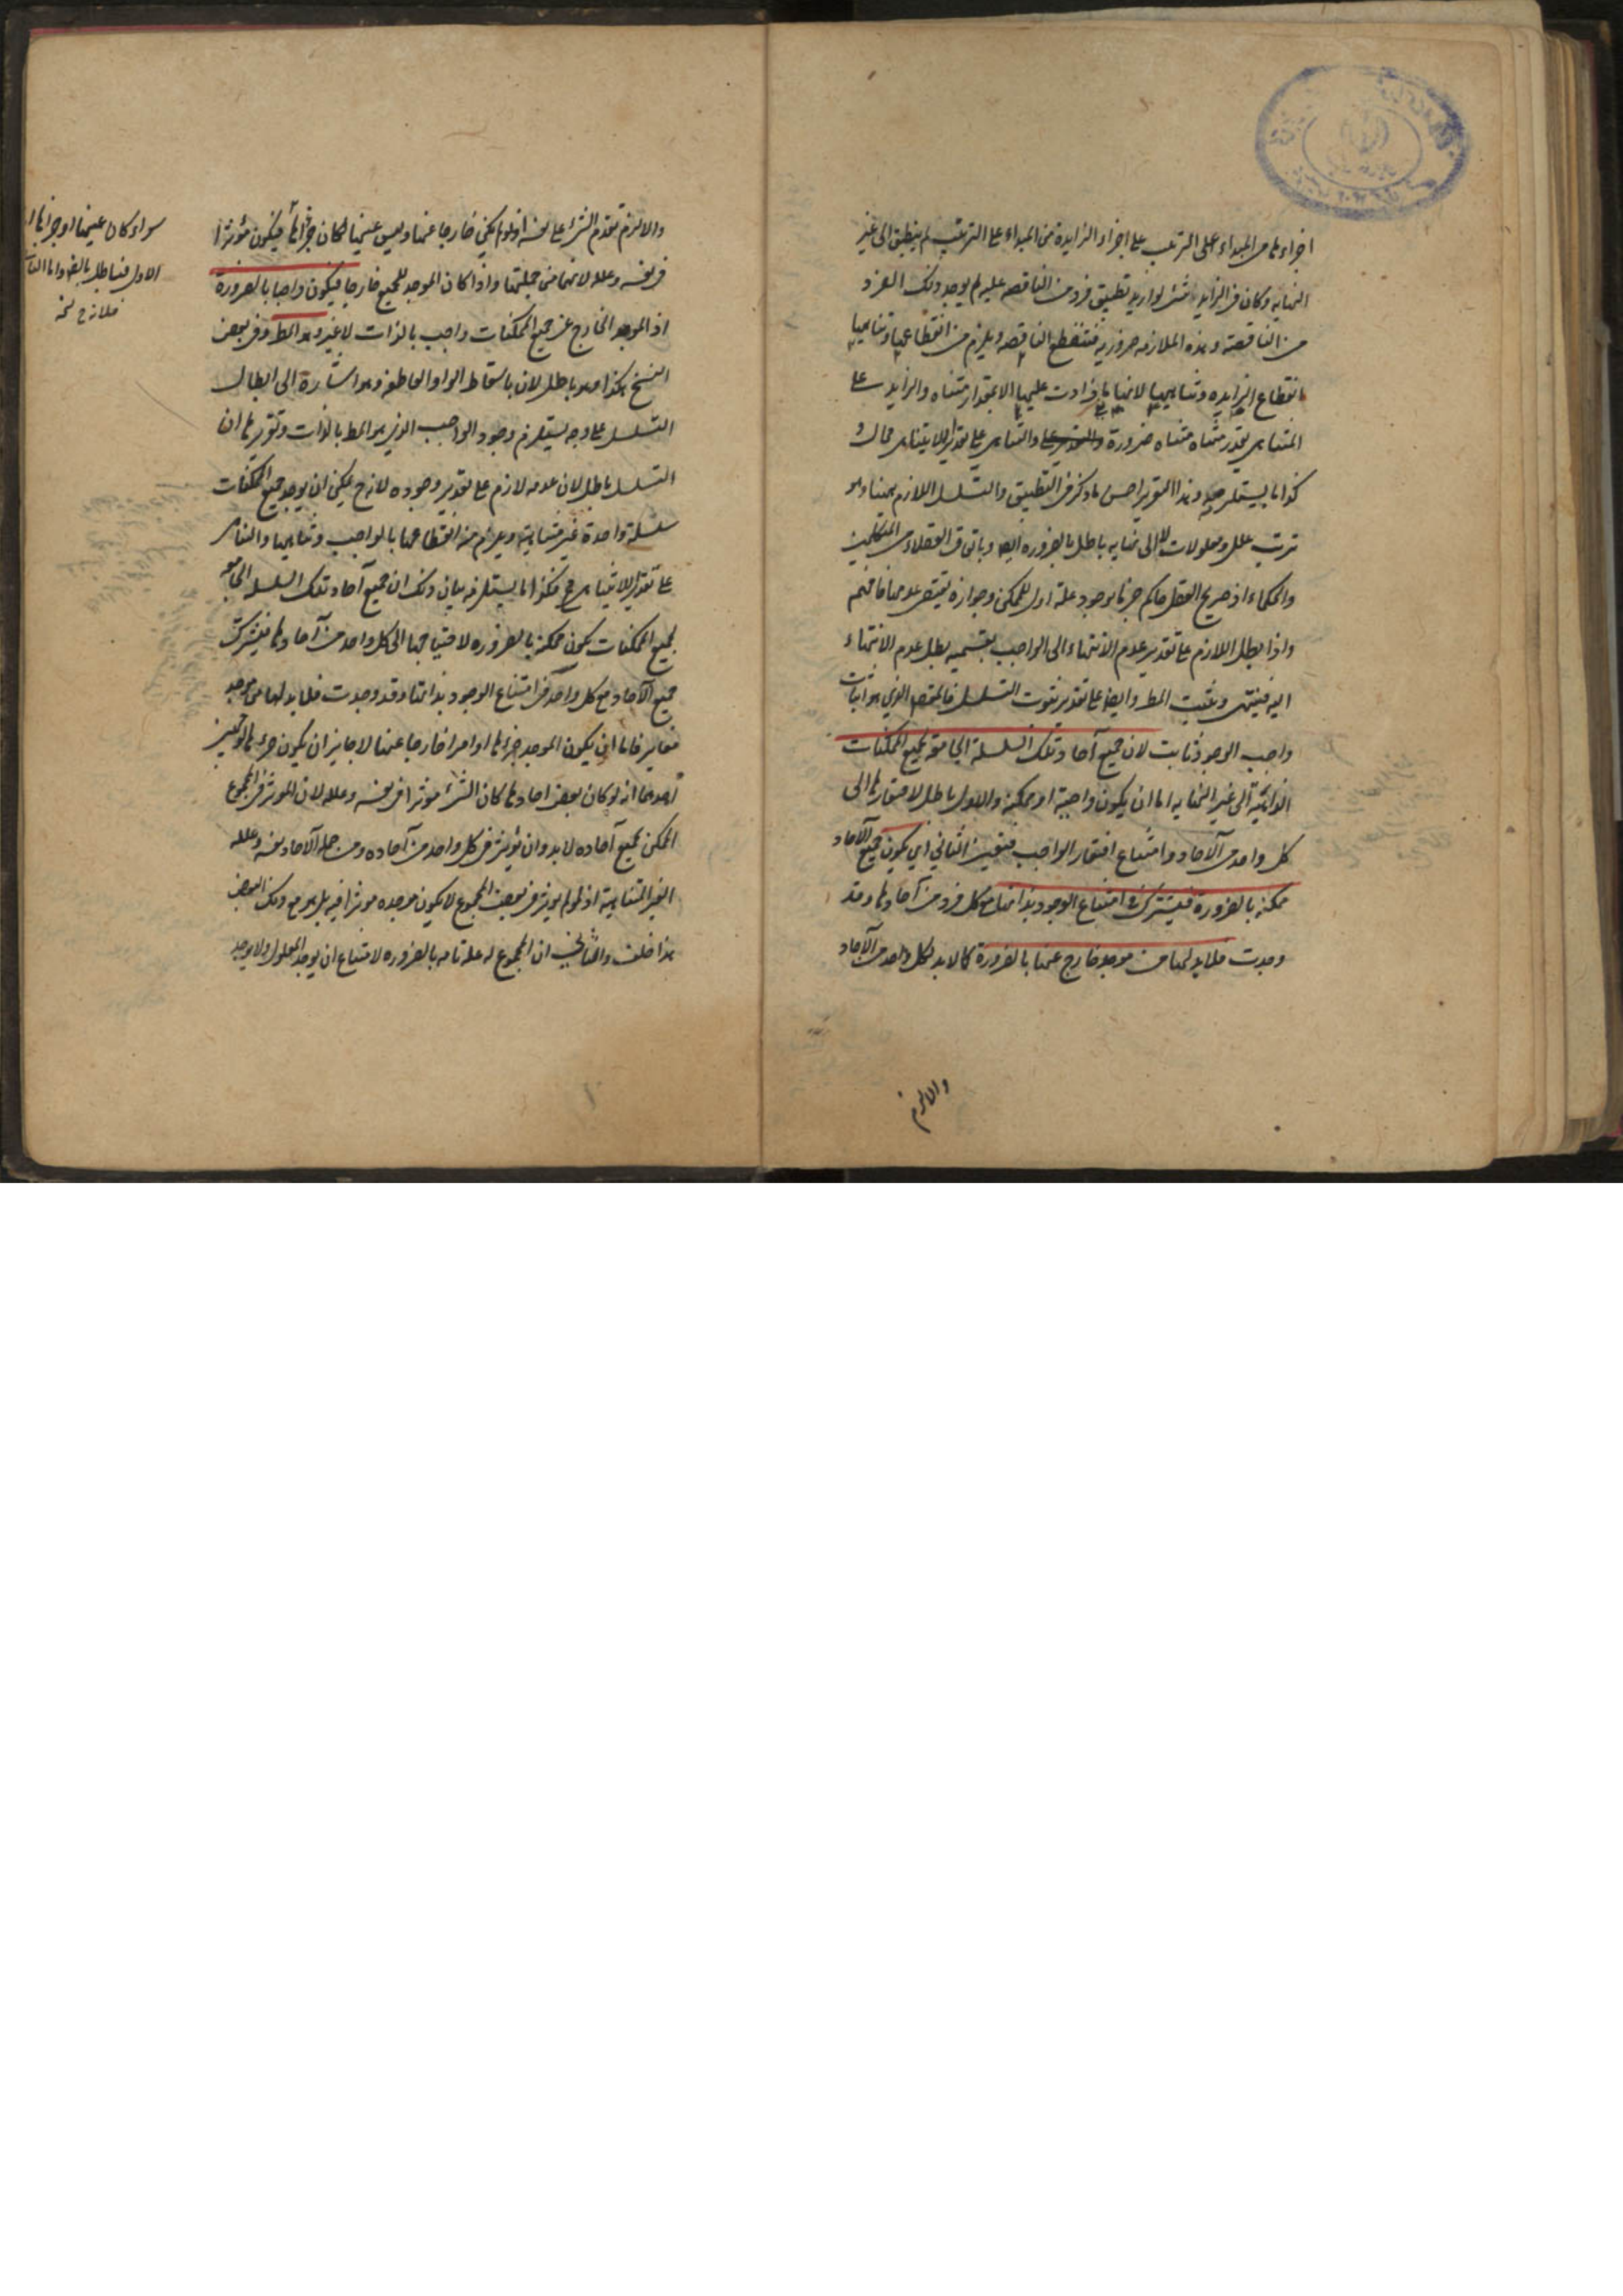 اجزاءها من المبداء على الترتيب على اجزاء الزايدة من المبداء على الترتيب لم ينطبق الى غير
النهاية وكان فى الزايد شئ لو اريد تطبيق فرد من الناقصه عليه لم يوجد ذلك الفرد
من الناقصة وهذه الملازمه ضروريه فتنقطع الناقصه ويلزم من انقطاعها وتناهيها
انقطاع الزايده وتناهيها لانها ما زادت عليها الا بمقدار متناه والزايد على
المتناهى بقدر متناه متناه ضرورة والتناهى على تقدير اللا تناهى محال و
كذا ما يستلزمه وهذا التقرير احسن ما ذكر فى التطبيق والتسلسل اللازم هيهنا وهو
ترتب علل ومعلولات لا الى نهايه باطل بالضروره ايضا وباتفاق العقلاء من المتكلمين
والحكماء اذ صريح العقل حاكم جزما بوجود علة اولى للممكن وجوازه يقتضى عدمها فافهم
واذا بطل اللازم على تقدير عدم الانتهاء الى الواجب بقسميه بطل عدم الانتهاء
اليه فينتهى ويثبت المط وايضا على تقدير ثبوت التسلسل فالمقصد الذى هو اثبات
واجب الوجود ثابت لان جميع آحاد تلك السلسلة الجامعة لجميع الممكنات
الذاهبة الى غير النهايه اما ان يكون واجبة او ممكنة والاول باطل لافتقارها الى
كل واحد من الآحاد وامتناع افتقار الواجب فتعين الثانى اى يكون جميع الآحاد
ممكنه بالضرورة فيشترك فى امتناع الوجود بذاتها مع كل فرد من آحادها وقد
وجدت فلا بد لها من موجد خارج عنها بالضرورة كما لا بد لكل واحد من الآحاد
والا لزم
والا لزم تقدم الشئ على نفسه اذ لو لم يكن خارجا عنها وليس عينها لكان جزائها فيكون مؤثرا
فى نفسه وعلله لانهما من جملتها واذا كان الموجد للجميع خارجا فيكون واجبا بالضرورة
اذ الموجد الخارج عن جميع الممكنات واجب بالذات لا غير وهو المط وفى بعض
النسخ هكذا وهو باطل لان باسقاط الواو العاطفه وهو اشارة الى ابطال
التسلسل على وجه يستلزم وجود الواجب الذى هو المط بالذات وتقريرها ان
التسلسل باطل لان عدمه لازم على تقدير وجوده لانه ح يمكن ان يوجد جميع الممكنات
سلسلة واحدة غير متناهية ويلزم منه انقطاعها بالواجب وتناهيها والتناهى
على تقدير اللا تناهى مح فكذا ما يستلزمه بيان ذلك ان جميع آحاد تلك السلسله الجامعه
لجميع الممكنات يكون ممكنه بالضروره لاحتياجها الى كل واحد من آحادها فيشترك
جميع الآحاد مع كل واحد فى امتناع الوجود بذاتها وقد وجدت فلا بد لها من موجد
مغاير فاما ان يكون الموجد جزءها او امرا خارجا عنها لا جايز ان يكون جزءها لوجهين
احدهما انه لو كان بعض احادها كان الشئ مؤثرا فى نفسه وعلله لان المؤثر فى المجموع
الممكن بجميع آحاده لا بد وان يؤثر فى كل واحد من آحاده ومن جملة الآحاد نفسه وعلله
الغير المتناهية اذ لو لم يؤثر فى بعض المجموع لا يكون موجده مؤثرا فيه بل هو مع ذلك البعض
هذا خلف والثانى ان المجموع له علة تامه بالضروره لامتناع ان يوجد المعلول ولا يوجد
سواء كان عينها او جزائها اما
الاول فباطل بالضر واما الثانى
فلانه ح نخه